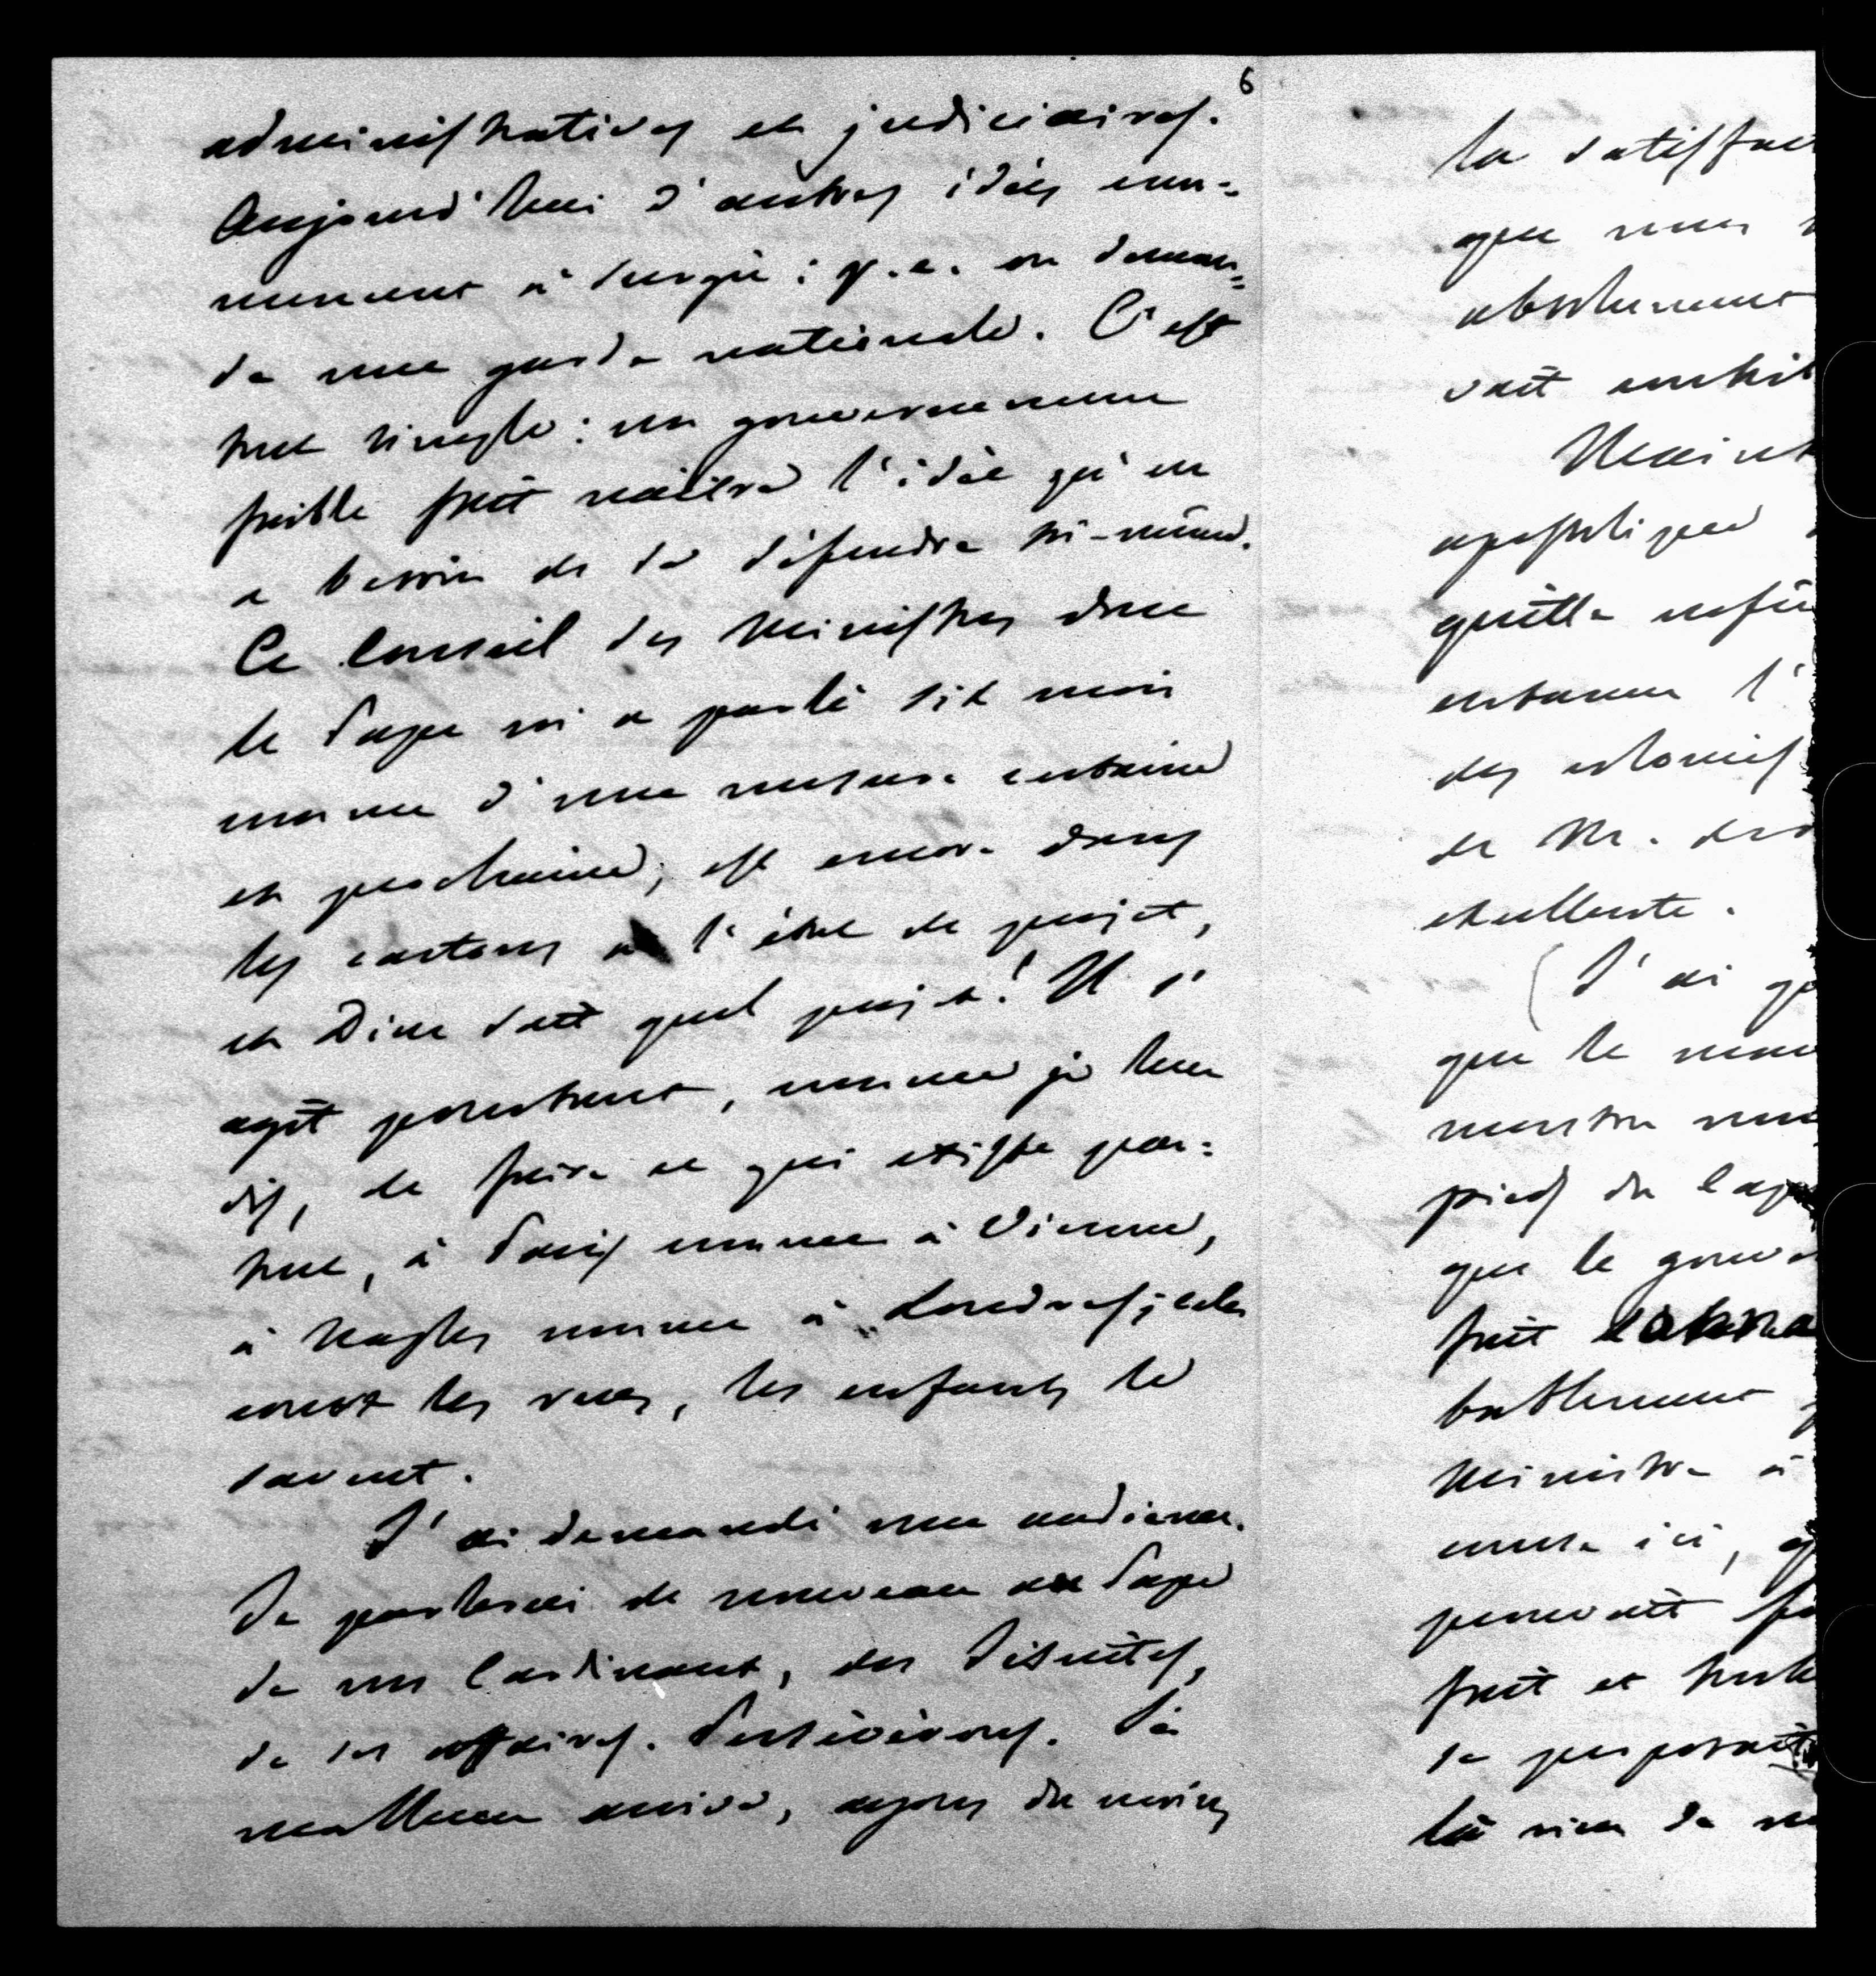 6
administratives et judiciaires.
Aujourd'hui d'autres idées com=
mencent à surgir : p.e. on deman=
de une garde nationale. C'est
tout simple : un gouvernement
faible fait naître l'idée qu'on
a besoin de se défendre soi-même.
Ce Conseil des Ministres dont
le Pape m'a parlé dix mois
comme d'une mesure certaine
et prochaine, est encore dans
les cartons à l'état de projet,
et Dieu sait quel projet! Il s'
agit pourtant, comme je leur
dis, de faire ce qui existe par=
tout, à Paris comme à Vienne,
à Naples comme à Londres; cela
court les rues, les enfants le
savent.
J'ai demandé une audience.
Je parlerai de nouveau au Pape
de nos Cardinaux, des Jésuites,
de ses affaires. Persévérons. Si
malheur arrive, ayons du moins
la satisfac
que nous
absolument
vait
Maint
apostolique
qu'elle
entame l'
des
de M.
excellente.
(J'ai
que le
montre
pied du Cap
que le gouve
fait
bablement
Ministre à
ici,
pouvait
fait et
se proposait
là rien de